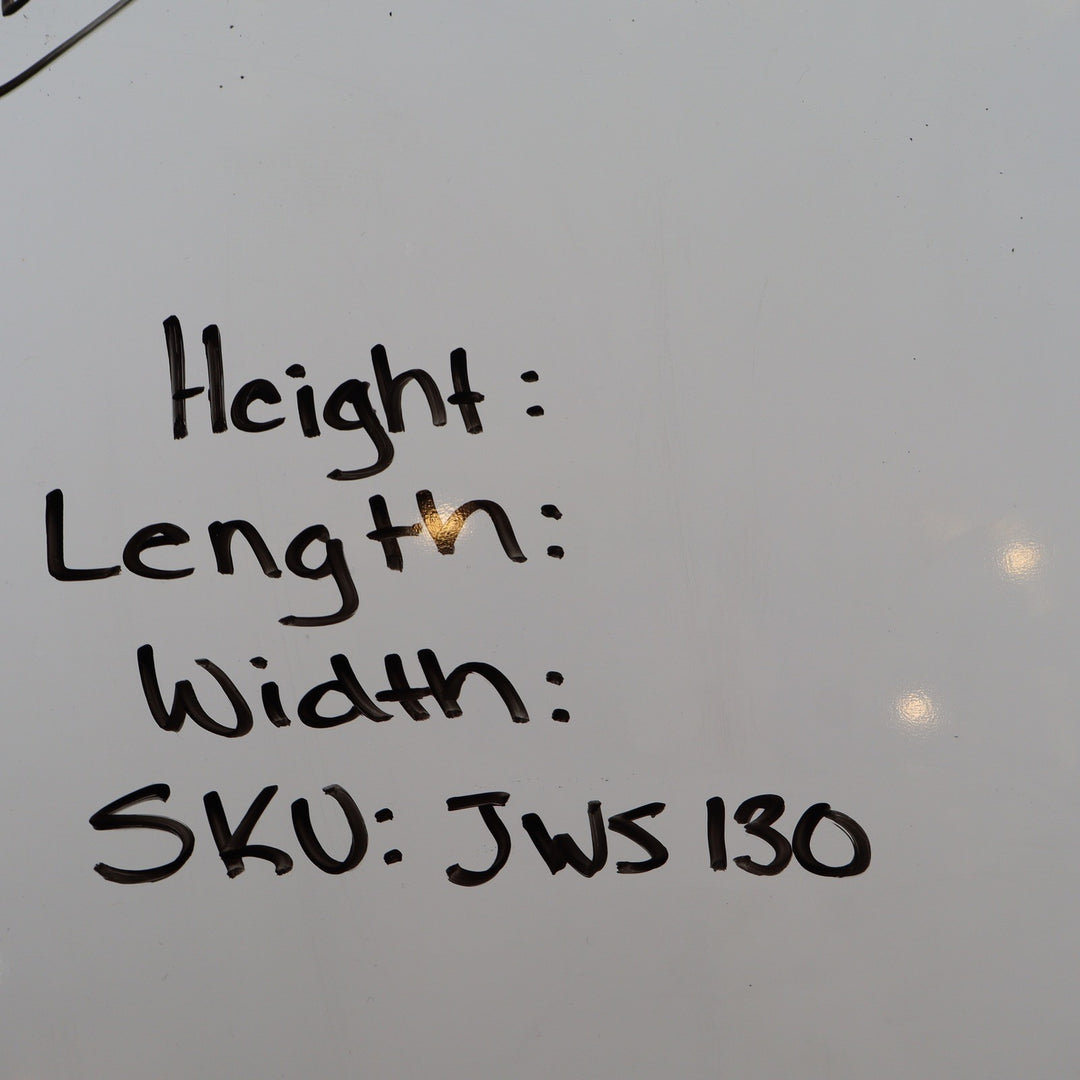 Height:
Length:
Width:
SKU: JWS130